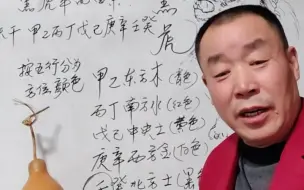 天干 甲乙丙丁戊己庚辛壬癸
按五行分为
方位颜色
黑
虎
甲乙东方木(青色)
丙丁南方火(红色)
戊己中央土(黄色)
庚辛西方金(白色)
壬癸北方水(黑色